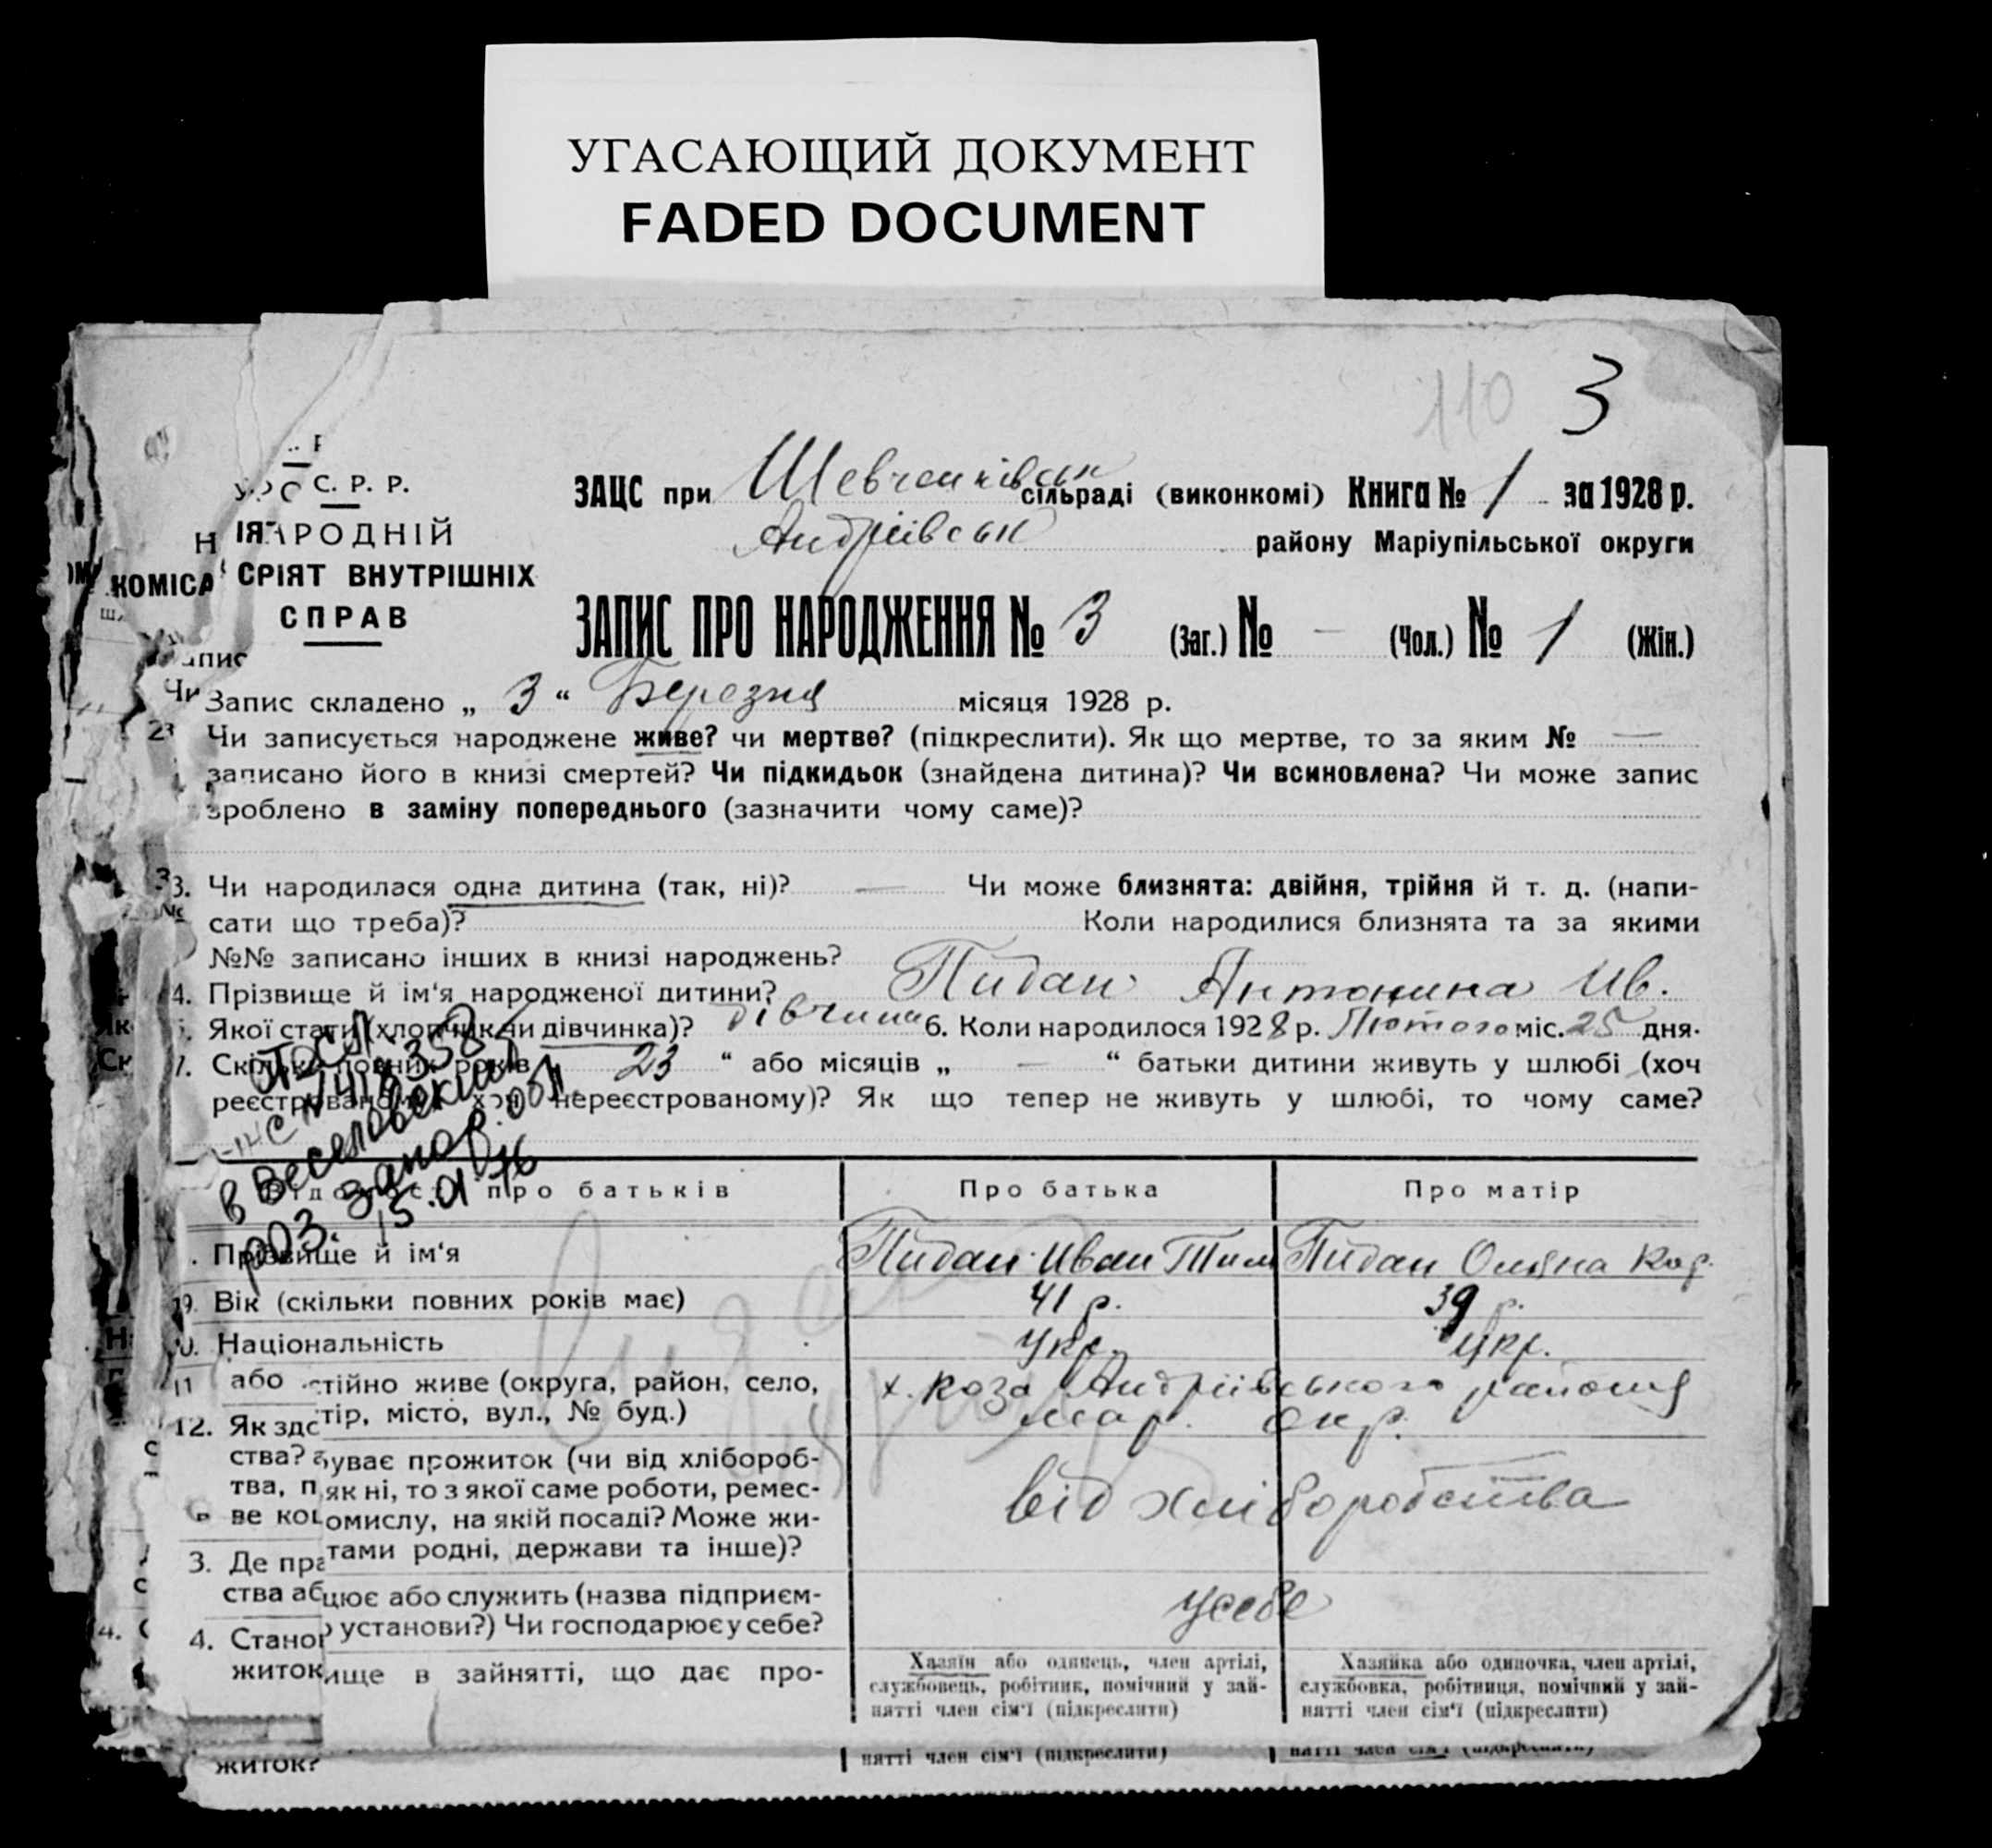 УГАСАЮЩИЙ ДОКУМЕНТ
FADED DOCUMENT
110 3
С. Р. Р.
НАРОДНІЙ
КОМІСАРІЯТ ВНУТРІШНІХ
СПРАВ
ЗАЦС при Шевченківськ сільраді (виконкомі) Книга № 1 за 1928 р.
Андріївськ району Маріупільської округи
ЗАПИС ПРО НАРОДЖЕННЯ № 3 (Заг.) № — (Чол.) № 1 (Жін.)
Запис складено „ 3 “ Березня місяця 1928 р.
Чи записується народжене живе? чи мертве? (підкреслити). Як що мертве, то за яким № —
записано його в книзі смертей? Чи підкидьок (знайдена дитина)? Чи всиновлена? Чи може запис
зроблено в заміну попереднього (зазначити чому саме)?
3. Чи народилася одна дитина (так, ні)? — Чи може близнята: двійня, трійня й т. д. (напи-
сати що треба)? Коли народилися близнята та за якими
№№ записано інших в книзі народжень?
4. Прізвище й ім‘я народженої дитини? Пидан Антонина Ив.
Якої стати (хлопчик чи дівчинка)? дівчина 6. Коли народилося 1928 р. Лютого міс. 25 дня.
7. Скільки повних років 23 “ або місяців „ — “ батьки дитини живуть у шлюбі (хоч
реєстрованому, хоч нереєстрованому)? Як що тепер не живуть у шлюбі, то чому саме?
в Веселовский
роз. Запор. обл.
15.01.76
про батьків Про батька Про матір
Прізвище й ім‘я Пидан Иван Тим Пидан Оляна Кор.
9. Вік (скільки повних років має) 41 р. 39 р.
Національність Укр. Укр.
11 або стійно живе (округа, район, село, х. Коза Андріївського району
тір, місто, вул., № буд.) мар. окр.
12. Як здо
ства? буває прожиток (чи від хлібороб-
тва, п як ні, то з якої саме роботи, ремес- від хліборобства
ве кош омислу, на якій посаді? Може жи-
тами родні, держави та інше)?
3. Де пра
ства аб цює або служить (назва підприєм-
о установи?) Чи господарює у себе? у себе
4. Станов
житок ище в зайнятті, що дає про-
Хазяїн або одинець, член артілі, Хазяйка або одиночка, член артілі,
службовець, робітник, помічний у зай- службовка, робітниця, помічний у зай-
нятті член сім‘ї (підкреслити) нятті член сім‘ї (підкреслити)
житок? нятті член сім‘ї (підкреслити)